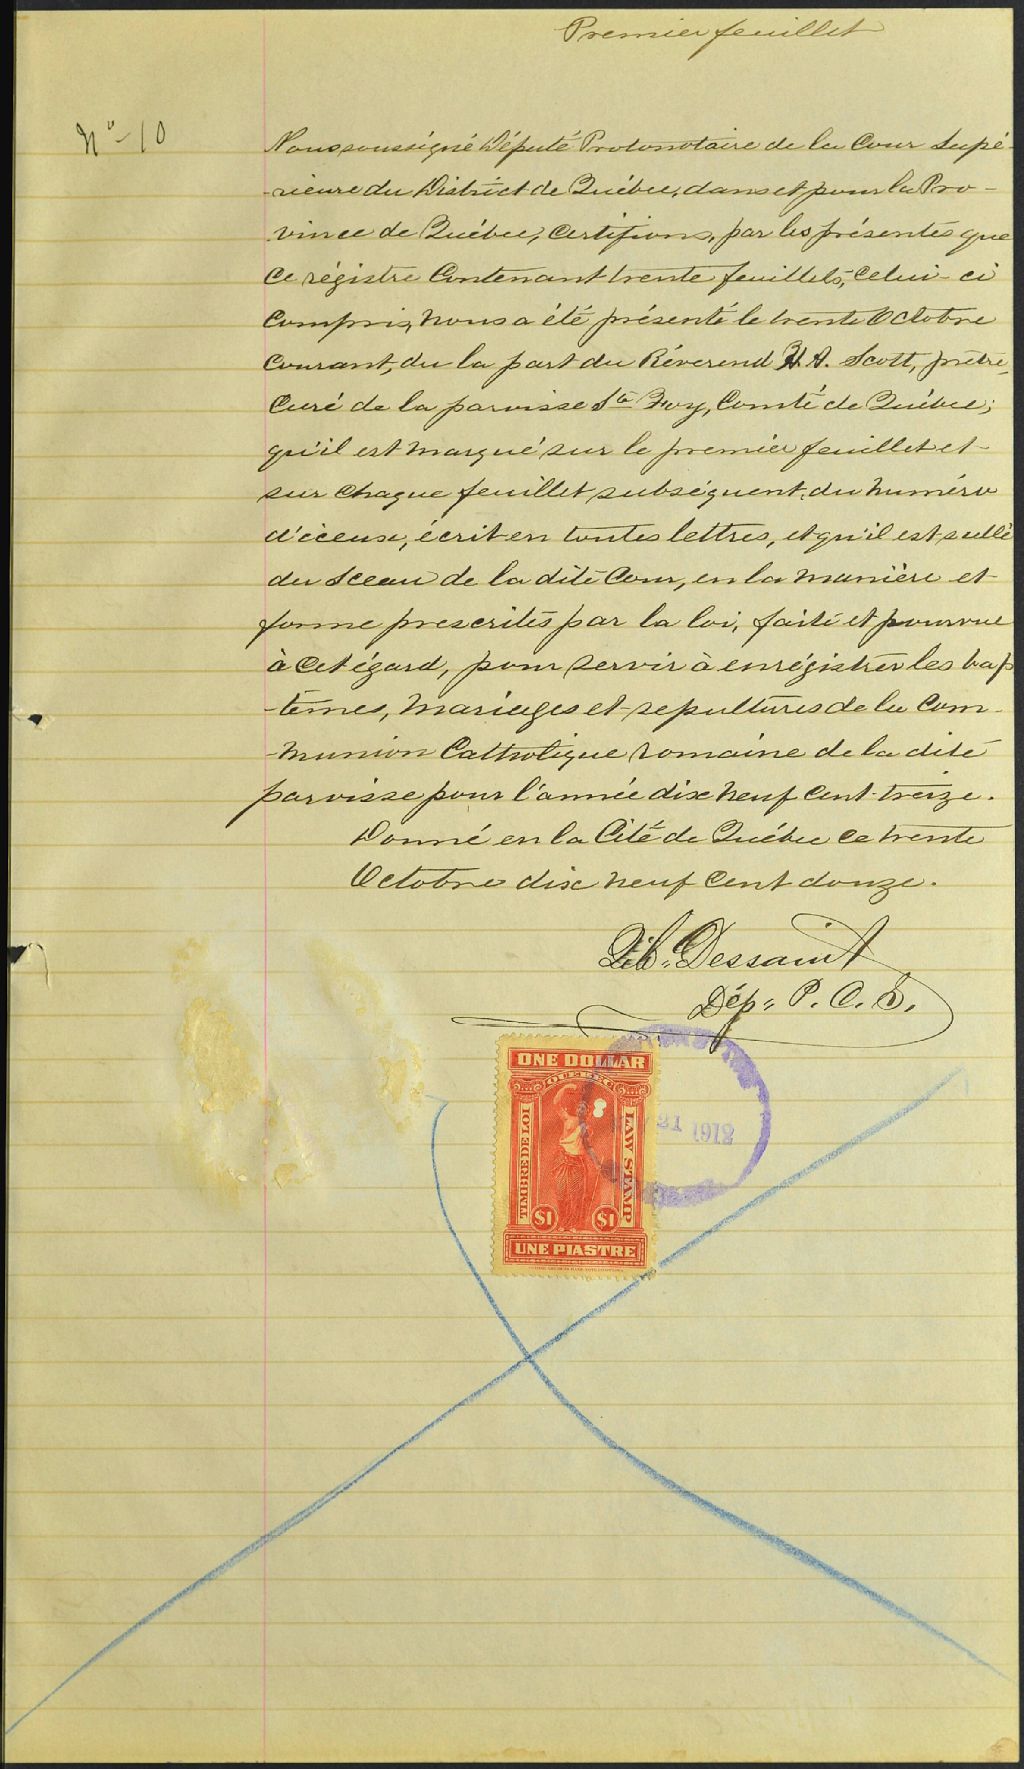 Premier feuillet
No - 10
Nous soussigné Député Protonotaire de la Cour Supé-
-rieure du District de Québec, dans et pour la Pro-
vince de Québec, certifions, par les présentes que
ce régistre contenant trente feuillets, celui-ci
compris, nous a été présenté le trente Octobre
courant, du la part du Révérend H. A. Scott, prêtre,
curé de la paroisse Ste Foy, Comté de Québec;
qu'il est marqué sur le premier feuillet et
sur chaque feuillet subséquent, du numéro
d'iceux, écrit en toutes lettres, et qu'il est scellé
du Sceau de la dite Cour, en la manière et
forme prescrites par la loi, faite et pourvue
à cet égard, pour servir à enrégistrer les bap
-têmes, mariages et sepultures de la Com-
-munion Catholique romaine de la dite
paroisse pour l'année dix neuf cent treize.
Donné en la Cité de Québec ce trente
Octobre dix neuf cent douze.
Dessaint
Dép. P. C. S.
ONE DOLLAR
QUEBEC
TIMBRE DE LOI
LAW STAMP
$1 $1
UNE PIASTRE
21 1912